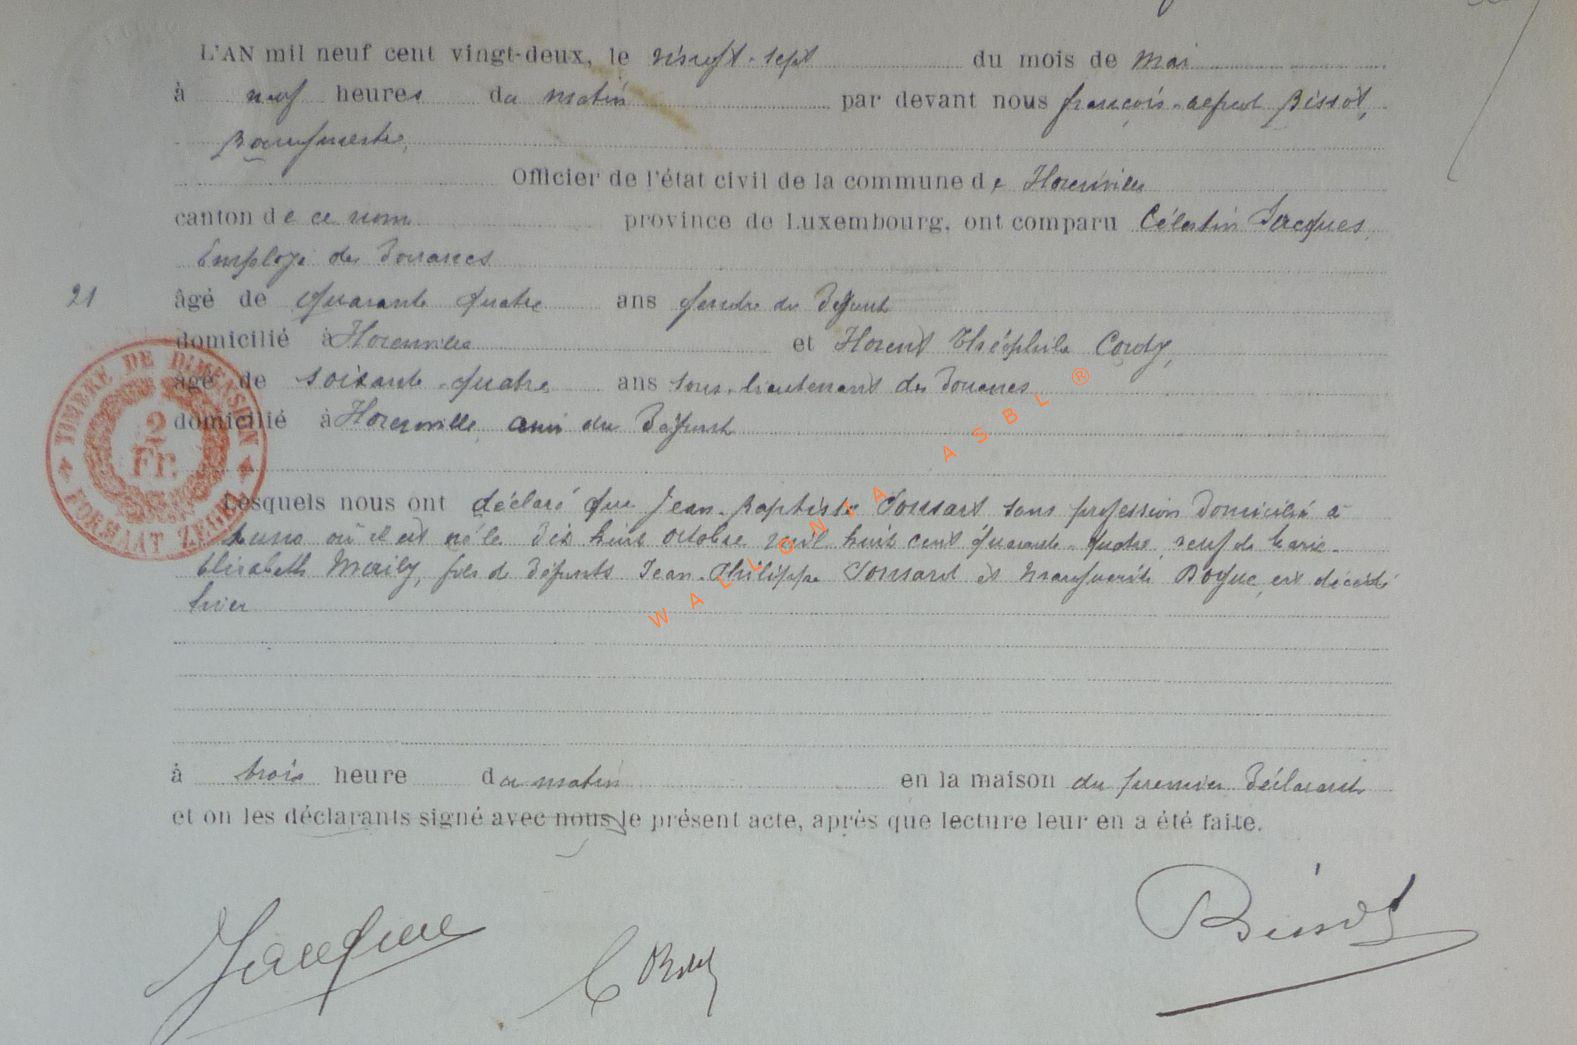 L'AN mil neuf cent vingt-deux, le vingt-sept du mois de mai
à neuf heures du matin par devant nous françois-alfred Bissot,
Bourgmestre,
Officier de l'état civil de la commune de Florenville
canton de ce nom province de Luxembourg, ont comparu Célestin Jacques,
Employé des Douanes
21 âgé de quarante quatre ans gendre du Défunt
domicilié à Florenville et Florent Théophile
âgé de soixante-quatre ans sous-lieutenant des Douanes
domicilié à Florenville ami du Défunt
Lesquels nous ont déclaré que Jean-Baptiste sans profession Domicilié à
où il est né le dix huit octobre mil huit cent quarante-quatre, veuf de Marie-
Elisabeth Mailly, fils de défunts Jean-Philippe et Marguerite est décédé
hier
à trois heure du matin en la maison du premier Déclarant
et on les déclarants signé avec nous le présent acte, après que lecture leur en a été faite.
Bissot
TIMBRE DE DIMENSION
2
Fr.
FORMAAT ZEGEL
WALLONIA ASBL ®